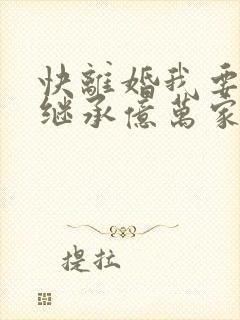 快離婚我要
继承億萬家
提拉